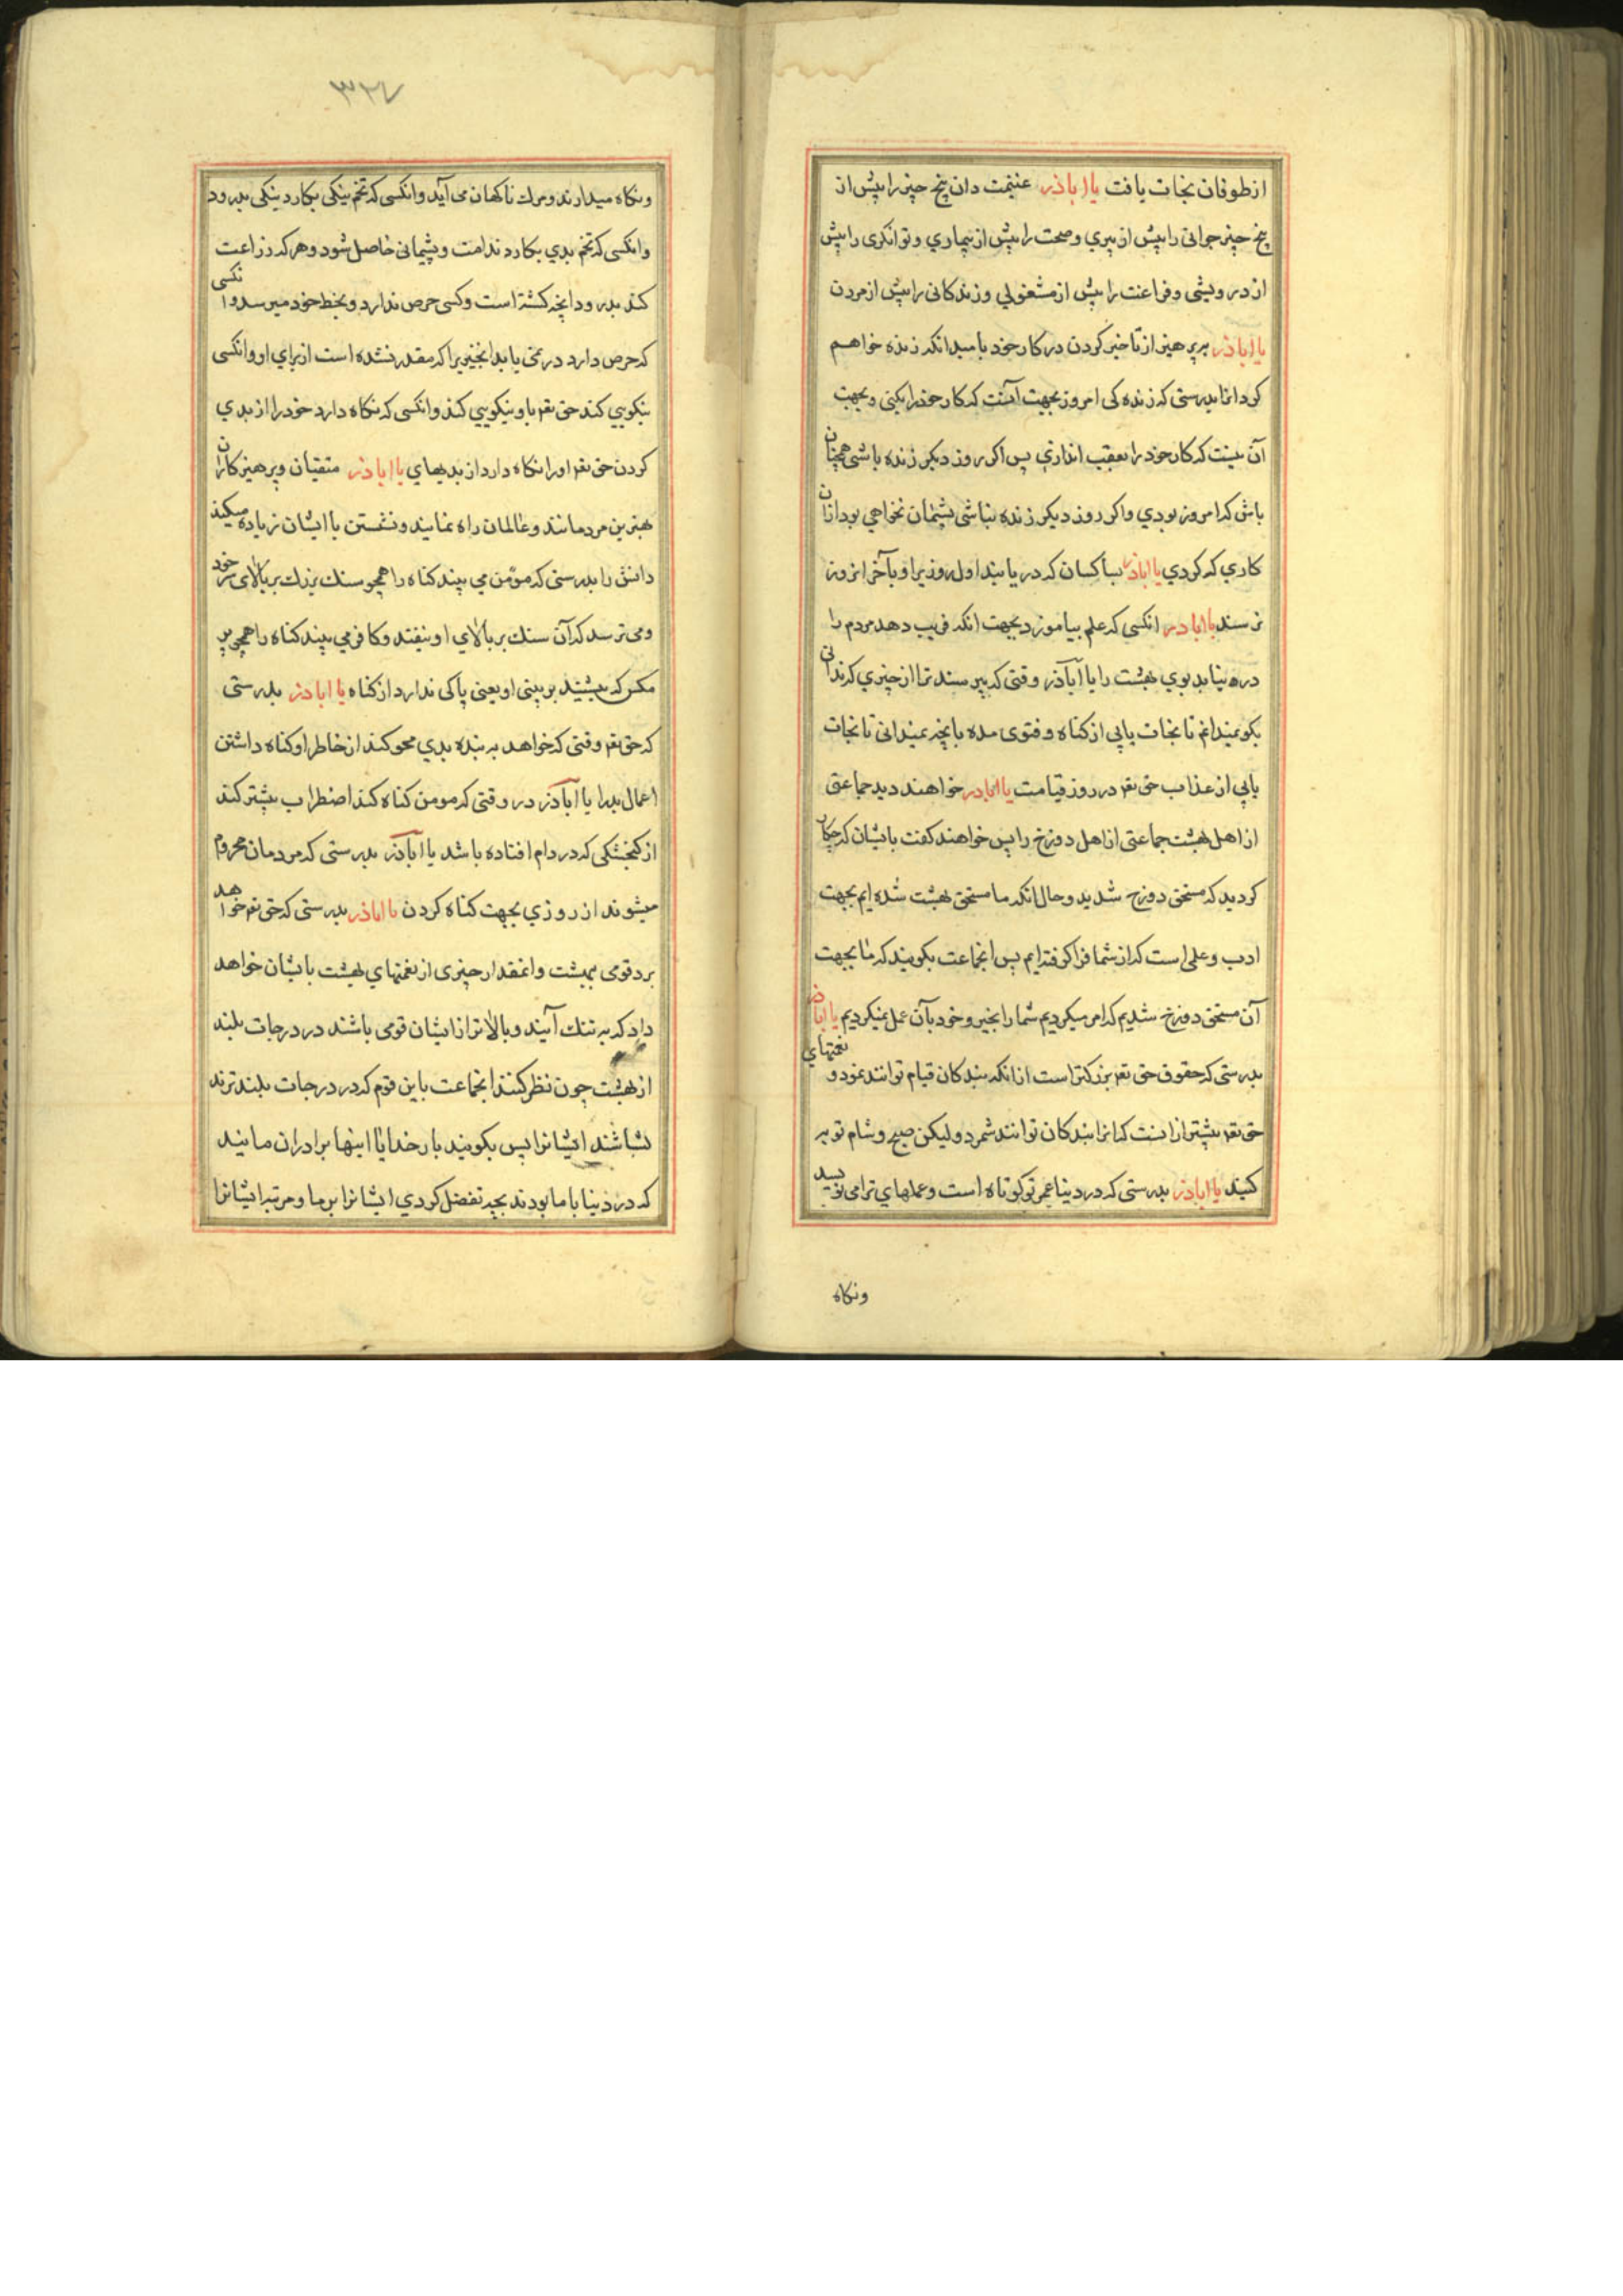 از طوفان نجات یافت یا اباذر غنیمت دان پنج چیز را پیش از
پنج چیز جوانی را پیش از پیري و صحت را پیش از بیماري و توانکری را پیش
از درویشی و فراغت را پیش از مشغولي و زندکانی را پیش از مردن
یا اباذر بپرهیز از تاخیر کردن در کار خود بامید انکه زنده خواهم
کرد انرا بدرستی که زنده کی امروز بجهت آنست که کار خود را بکنی و بجهت
آن نیست که کار خود را بعقب اندازي پس اکر روز دیکر زنده باشی همچنان
باش که امروز بودي و اکر روز دیکر زنده نباشی پشیمان نخواهي بود ازان
کاري که کردي یا اباذر بسا کسان که دریابند اول روزیرا و بآخر انروز
نرسند یا اباذر انکسی که علم بیاموزد بجهت انکه فریب دهد مردم را
در نیابد بوي بهشت را یا اباذر وقتی که بپرسند ترا از چیزي که ندانی
بکو نمیدانم تا نجات یابي از کناه و فتوی مده بانچه نمیدانی تا نجات
یابي از عذاب حق تعم در روز قیامت یا اباذر خواهند دید جماعتی
از اهل بهشت جماعتی از اهل دوزخ را پس خواهند کفت بایشان که چکار
کردید که مستحق دوزخ شدید و حال انکه ما مستحق بهشت شده ایم بجهت
ادب و علمی است که از شما فرا کرفته ایم پس انجماعت بکویند که ما بجهت
آن مستحق دوزخ شدیم که امر میکردیم شما را بخیر و خود بآن عمل نمیکردیم یا اباذر
بدرستی که حقوق حق تعم بزرکتر است از انکه بندکان قیام توانند نمود و نعمتهاي
حق تعم بیشتر از انست که انرا بندکان توانند شمرد و لیکن صبح و شام توبه
کنید یا اباذر بدرستی که در دنیا عمر تو کوتاه است و عملهاي ترا می نویسند
ونکاه
۳۲۷
و نکاه میدارند و مرك ناکهان می آید و انکسی که تخم نیکی بکارد نیکی بدرود
و انکسی که تخم بدي بکارد ندامت و پشیمانی حاصل شود و هر که زراعت
کند بدرود انچه کشته است و کسی حرص ندارد و بخط خود میرسد و انکسی
که حرص دارد در نمی یابد انچیزیرا که مقدر نشده است از براي او و انکسی
نیکویي کند حق تعم باو نیکویي کند و انکسی که نکاه دارد خود را از بدي
کردن حق تعم او را نکاه دارد از بدیهاي یا اباذر متقیان و پرهیزکاران
بهترین مردمانند و عالمان راه نمایند و نشستن با ایشان زیاده میکند
دانش را بدرستی که مؤمن می بیند کناه را همچو سنك بزرك بر بالاي سر خود
و می ترسد که آن سنك بر بالاي او بیفتد و کافر می بیند کناه را همچو پر
مکس که بنشیند بر بینی او یعنی پاکی ندارد از کناه یا اباذر بدرستی
که حق تعم وقتی که خواهد به بنده بدي محو کند از خاطر او کناه داشتن
اعمال بد را یا اباذر در وقتی که مومن کناه کند اضطراب بیشتر کند
از کنجشکی که در دام افتاده باشد یا اباذر بدرستی که مردمان محروم
میشوند از روزي بجهت کناه کردن یا اباذر بدرستی که حق تعم خواهد
برد قومی ببهشت و انمقدار چیزی از نعمتهاي بهشت بایشان خواهد
داد که به تنك آیند و بالاتر از ایشان قومی باشند در درجات بلند
از بهشت چون نظر کنند انجماعت باین قوم که در درجات بلند ترند
بشناسند ایشانرا پس بکویند بار خدایا اینها برادران مایند
که در دنیا با ما بودند بچه تفضل کردي ایشانرا بر ما و مرتبه ایشانرا